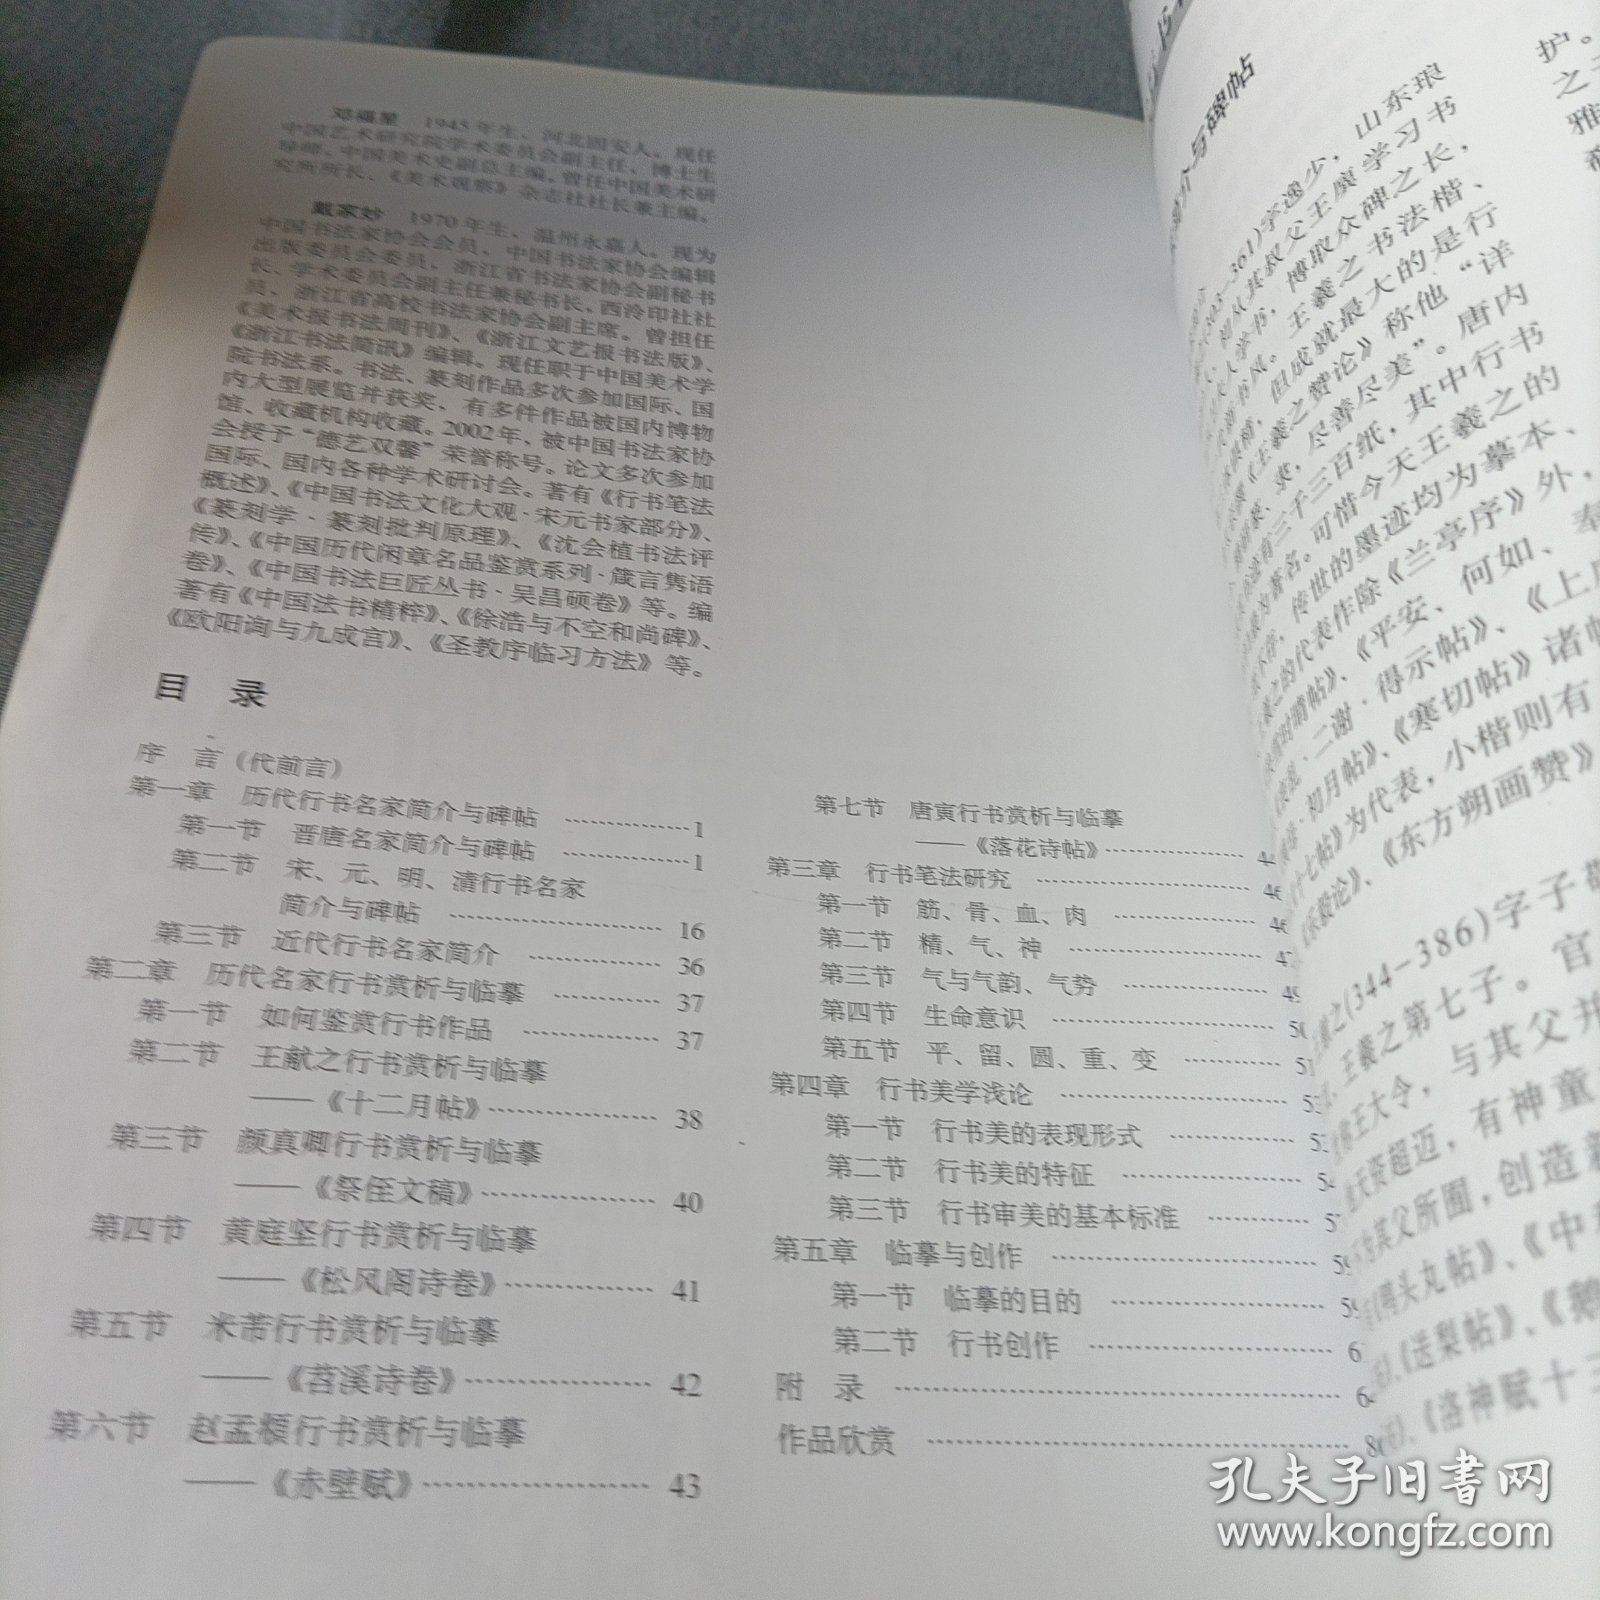 邓福星 1945年生，河北固安人。现任
中国艺术研究院学术委员会副主任、博士生
导师，中国美术史副总主编。曾任中国美术研
究所所长、《美术观察》杂志社社长兼主编。
戴家妙 1970年生，温州永嘉人。现为
中国书法家协会会员、中国书法家协会编辑
出版委员会委员，浙江省书法家协会副秘书
长、学术委员会副主任兼秘书长，西泠印社社
员、浙江省高校书法家协会副主席。曾担任
《美术报书法周刊》、《浙江文艺报书法版》、
《浙江书法简讯》编辑。现任职于中国美术学
院书法系。书法、篆刻作品多次参加国际、国
内大型展览并获奖，有多件作品被国内博物
馆、收藏机构收藏。2002年，被中国书法家协
会授予“德艺双馨”荣誉称号。论文多次参加
国际、国内各种学术研讨会。著有《行书笔法
概述》、《中国书法文化大观·宋元书家部分》、
《篆刻学·篆刻批判原理》、《沈会植书法评
传》、《中国历代闲章名品鉴赏系列·箴言隽语
卷》、《中国书法巨匠丛书·吴昌硕卷》等。编
著有《中国法书精粹》、《徐浩与不空和尚碑》、
《欧阳询与九成宫》、《圣教序临习方法》等。
目 录
序 言（代前言）
第一章 历代行书名家简介与碑帖 ……………1
第一节 晋唐名家简介与碑帖 ……………1
第二节 宋、元、明、清行书名家
简介与碑帖 …………………… 16
第三节 近代行书名家简介 …………… 36
第二章 历代名家行书赏析与临摹 ………… 37
第一节 如何鉴赏行书作品 …………… 37
第二节 王献之行书赏析与临摹
——《十二月帖》……………… 38
第三节 颜真卿行书赏析与临摹
——《祭侄文稿》……………… 40
第四节 黄庭坚行书赏析与临摹
——《松风阁诗卷》…………… 41
第五节 米芾行书赏析与临摹
——《苕溪诗卷》……………… 42
第六节 赵孟頫行书赏析与临摹
——《赤壁赋》………………… 43
第七节 唐寅行书赏析与临摹
——《落花诗帖》………………
第三章 行书笔法研究 ……………………
第一节 筋、骨、血、肉 ………………
第二节 精、气、神 ……………………
第三节 气与气韵、气势 ………………
第四节 生命意识 ……………………
第五节 平、留、圆、重、变 …………
第四章 行书美学浅论 ……………………
第一节 行书美的表现形式 …………
第二节 行书美的特征 ………………
第三节 行书审美的基本标准 ………
第五章 临摹与创作 ……………………
第一节 临摹的目的 …………………
第二节 行书创作 ……………………
附 录 ……………………………………
作品欣赏 …………………………………
介与碑帖
字逸少，山东琅
初从其叔父王廙学习书
学书，博取众碑之长，
书风。王羲之书法楷、
但成就最大的是行
《王羲之赞论》称他“详
尽善尽美”。唐内
三千三百纸，其中行书
著名。可惜今天王羲之的
传世的墨迹均为摹本、
之的代表作除《兰亭序》外，
《平安、何如、奉
二谢·得示帖》、《上
初月帖》、《寒切帖》诸帖
《十七帖》为代表，小楷则有
《乐毅论》、《东方朔画赞》
之(344-386)字子敬
王羲之第七子。官
王大令，与其父并
天资超迈，有神童
为其父所囿，创造新
《鸭头丸帖》、《中
《送梨帖》、《鹅
《洛神赋十三
护。
之
雅
孔夫子旧书网
www.kongfz.com